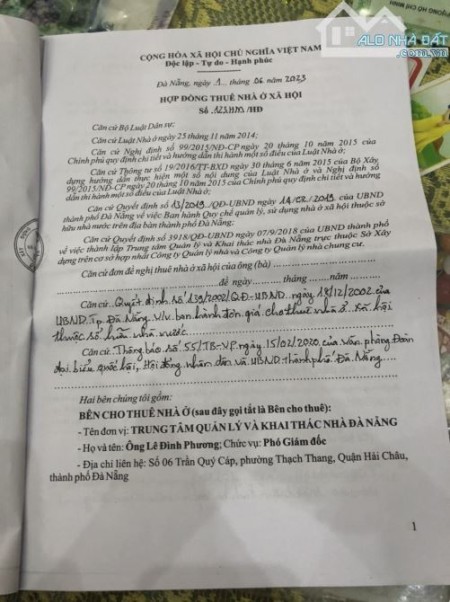 ALO NHÀ ĐẤT
CỘNG HÒA XÃ HỘI CHỦ NGHĨA VIỆT NAM
Độc lập - Tự do - Hạnh phúc
Đà Nẵng, ngày 1 tháng 06 năm 2023
HỢP ĐỒNG THUÊ NHÀ Ở XÃ HỘI
Số /HĐ
Căn cứ Bộ Luật Dân sự;
Căn cứ Luật Nhà ở ngày 25 tháng 11 năm 2014;
Căn cứ Nghị định số 99/2015/NĐ-CP ngày 20 tháng 10 năm 2015 của
Chính phủ quy định chi tiết và hướng dẫn thi hành một số điều của Luật Nhà ở;
Căn cứ Thông tư số 19/2016/TT-BXD ngày 30 tháng 6 năm 2015 của Bộ Xây
dựng hướng dẫn thực hiện một số nội dung của Luật Nhà ở và Nghị định số
99/2015/NĐ-CP ngày 20 tháng 10 năm 2015 của Chính phủ quy định chi tiết và hướng
dẫn thi hành một số điều của Luật Nhà ở;
Căn cứ Quyết định số 13/2019/QĐ-UBND ngày 2019 của UBND
thành phố Đà Nẵng về việc Ban hành Quy chế quản lý, sử dụng nhà ở xã hội thuộc sở
hữu nhà nước trên địa bàn thành phố Đà Nẵng;
Căn cứ Quyết định số 3918/QĐ-UBND ngày 07/9/2018 của UBND thành phố
về việc thành lập Trung tâm Quản lý và Khai thác nhà Đà Nẵng trực thuộc Sở Xây
dựng trên cơ sở hợp nhất Công ty Quản lý nhà và Công ty Quản lý nhà chung cư.
Căn cứ đơn đề nghị thuê nhà ở xã hội của ông (bà)
đề ngày ........... tháng ......... năm .........
Căn cứ Quyết định số 139/2002/QĐ-UBND ngày 18/12/2002 của
UBND Tp Đà Nẵng V/v ban hành đơn giá cho thuê nhà ở xã hội
thuộc sở hữu nhà nước
Căn cứ Thông báo số 55/TB-VP ngày 15/02/2020 của Văn phòng Đoàn
đại biểu quốc hội, Hội đồng nhân dân và UBND Thành phố Đà Nẵng
Hai bên chúng tôi gồm:
BÊN CHO THUÊ NHÀ Ở (sau đây gọi tắt là Bên cho thuê):
- Tên đơn vị: TRUNG TÂM QUẢN LÝ VÀ KHAI THÁC NHÀ ĐÀ NẴNG
- Họ và tên: Ông Lê Đình Phương; Chức vụ: Phó Giám đốc
- Địa chỉ liên hệ: Số 06 Trần Quý Cáp, phường Thạch Thang, Quận Hải Châu,
thành phố Đà Nẵng
1